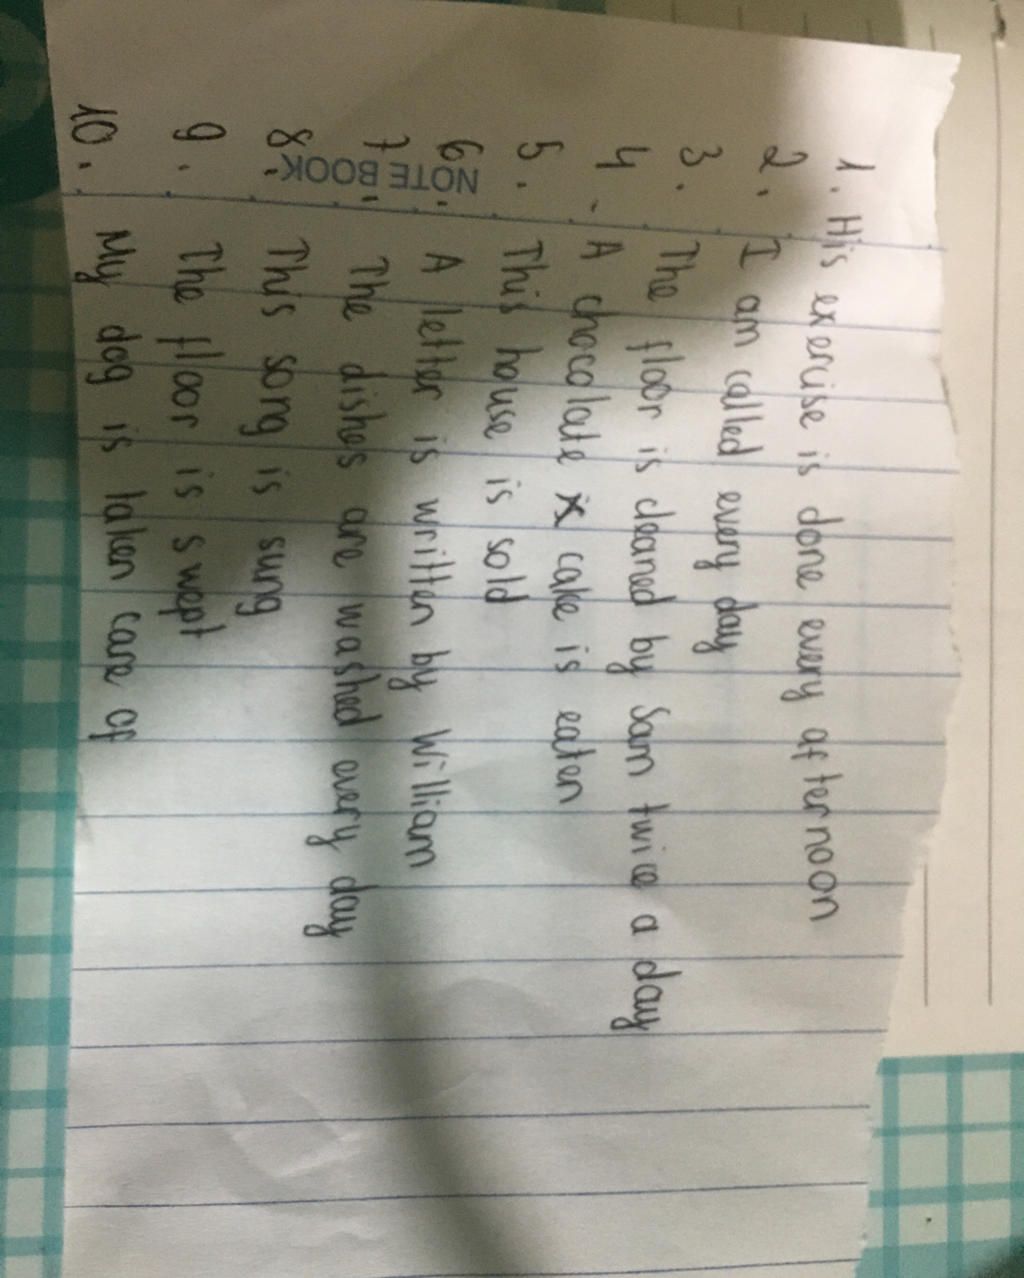 1. His exercise is done every afternoon
2. I am called every day
3. The floor is cleaned by Sam twice a day
4 - A chocolate cake is eaten
5. This house is sold
6. A letter is written by William
7. The dishes are washed every day
8. This song is sung
9. The floor is swept
10. My dog is taken care of
NOTEBOOK